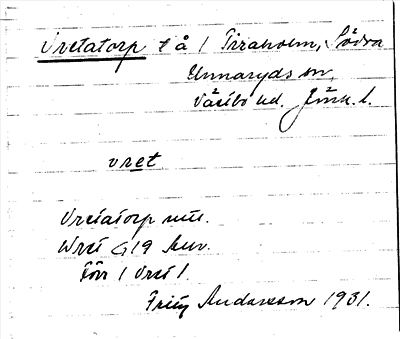 Vretatorp t å / Tiraholm, Södra
Unnaryds sn,
Västbo hd. Jönk. l.
vret
Vretatorp
Wret G 19
Förr / Vret /.
Andersson 1931.